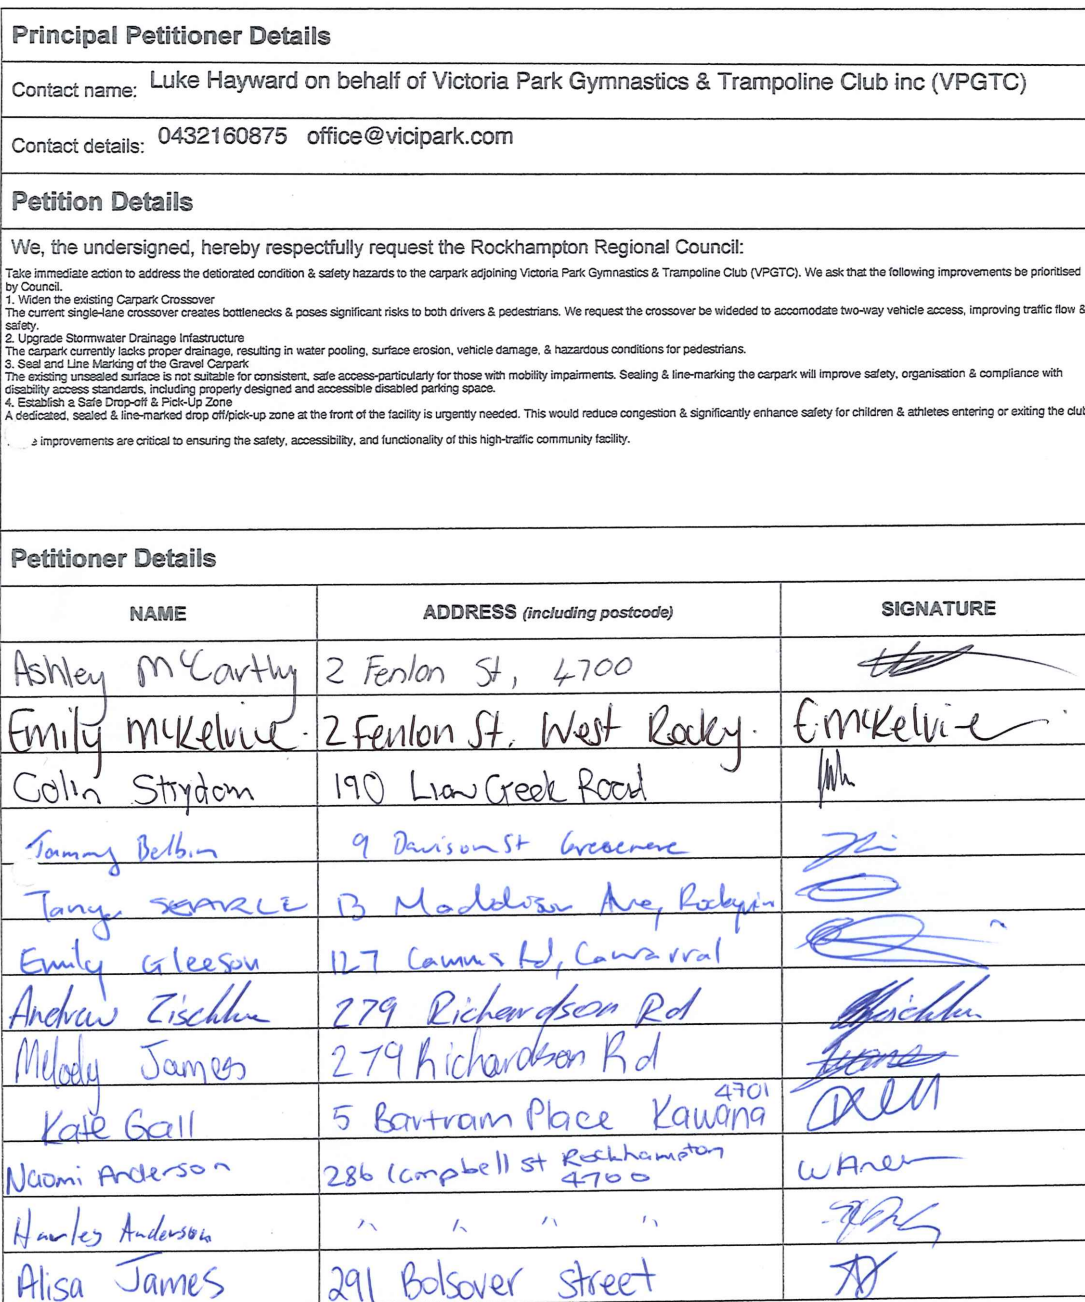 Principal Petitioner Details
Contact name: Luke Hayward on behalf of Victoria Park Gymnastics & Trampoline Club inc (VPGTC)
Contact details: 0432160875 office@vicipark.com
Petition Details
We, the undersigned, hereby respectfully request the Rockhampton Regional Council:
Take immediate action to address the detiorated condition & safety hazards to the carpark adjoining Victoria Park Gymnastics & Trampoline Club (VPGTC). We ask that the following improvements be prioritised
by Council.
1. Widen the existing Carpark Crossover
The current single-lane crossover creates bottlenecks & poses significant risks to both drivers & pedestrians. We request the crossover be wideded to accomodate two-way vehicle access, improving traffic flow &
safety.
2. Upgrade Stormwater Drainage Infastructure
The carpark currently lacks proper drainage, resulting in water pooling, surface erosion, vehicle damage, & hazardous conditions for pedestrians.
3. Seal and Line Marking of the Gravel Carpark
The existing unsealed surface is not suitable for consistent, safe access-particularly for those with mobility impairments. Sealing & line-marking the carpark will improve safety, organisation & compliance with
disability access standards, including properly designed and accessible disabled parking space.
4. Establish a Safe Drop-off & Pick-Up Zone
A dedicated, sealed & line-marked drop off/pick-up zone at the front of the facility is urgently needed. This would reduce congestion & significantly enhance safety for children & athletes entering or exiting the club
e improvements are critical to ensuring the safety, accessibility, and functionality of this high-traffic community facility.
Petitioner Details
NAME ADDRESS (including postcode) SIGNATURE
Ashley McCarthy 2 Fenlon St, 4700
Emily McKelvie. 2 Fenlon St. West Rocky. E McKelvie
Colin Strydom 190 Lion Creek Road
Tammy Belbin 9 Davison St Gracemere
Tanya SEARLE 13 Maddison Ave, Rockyvin
Emily Gleeson 127 Cawarral
Andrew Zischke 279 Richardson Rd
Melody James 279 Richardson Rd
Kate Gall 5 Bartram Place Kawana 4701
Naomi Anderson 286 Campbell st Rockhampton 4700
Harley Anderson " " " "
Alisa James 291 Bolsover street